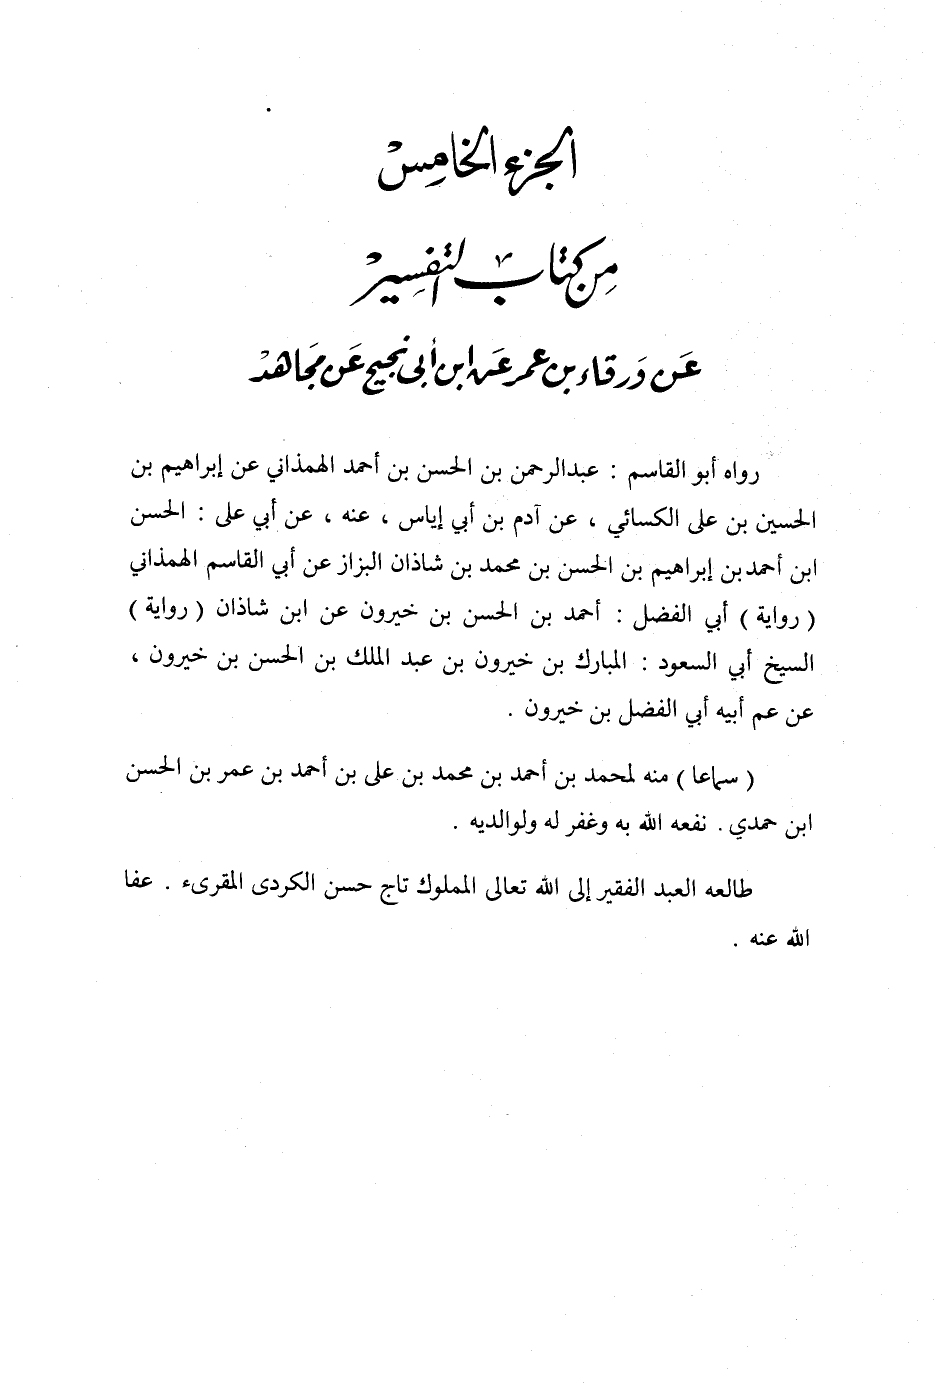 الجزء الخامس
من كتاب التفسير
عن ورقاء بن عمر عن ابن أبي نجيح عن مجاهد
رواه أبو القاسم : عبدالرحمن بن الحسن بن أحمد الهمذاني عن إبراهيم بن
الحسين بن على الكسائي ، عن آدم بن أبي إياس ، عنه ، عن أبي على : الحسن
ابن أحمد بن إبراهيم بن الحسن بن محمد بن شاذان البزاز عن أبي القاسم الهمذاني
( رواية ) أبي الفضل : أحمد بن الحسن بن خيرون عن ابن شاذان ( رواية )
السيخ أبي السعود : المبارك بن خيرون بن عبد الملك بن الحسن بن خيرون ،
عن عم أبيه أبي الفضل بن خيرون .
( سماعا ) منه لمحمد بن أحمد بن محمد بن على بن أحمد بن عمر بن الحسن
ابن حمدي . نفعه الله به وغفر له ولوالديه .
طالعه العبد الفقير إلى الله تعالى المملوك تاج حسن الكردى المقرىء . عفا
الله عنه .